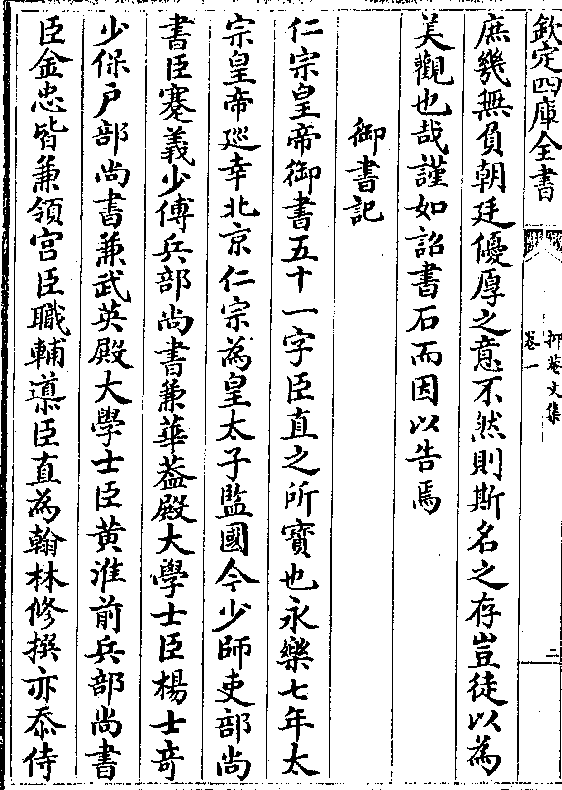 欽定四庫全書
抑菴文集
卷一
二
庶幾無負朝廷優厚之意不然則斯名之存豈徒以為
美觀也哉謹如詔書石而因以告焉
御書記
仁宗皇帝御書五十一字臣直之所寶也永樂七年太
宗皇帝廵幸北京仁宗為皇太子監國今少師吏部尚
書臣蹇義少傅兵部尚書兼華葢殿大學士臣楊士竒
少保户部尚書兼武英殿大學士臣黄淮前兵部尚書
臣金忠皆兼領宫臣職輔導臣直為翰林修撰亦忝侍